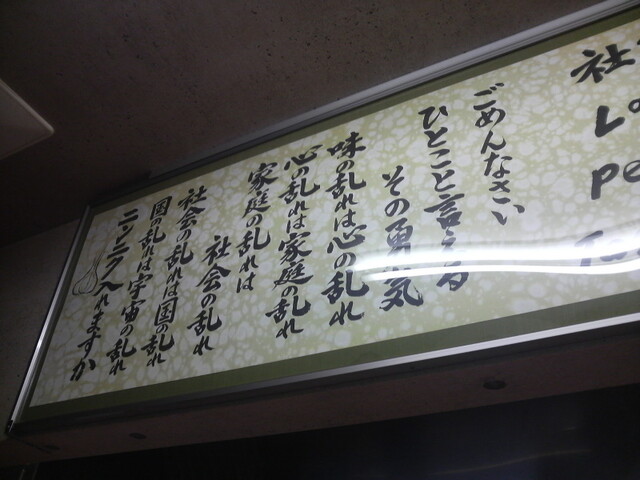 社
Lo
pe
ごめんなさい
ひとこと言える
その勇気
味の乱れは心の乱れ
心の乱れは家庭の乱れ
家庭の乱れは
社会の乱れ
社会の乱れは国の乱れ
国の乱れは宇宙の乱れ
ニンニク入れますか